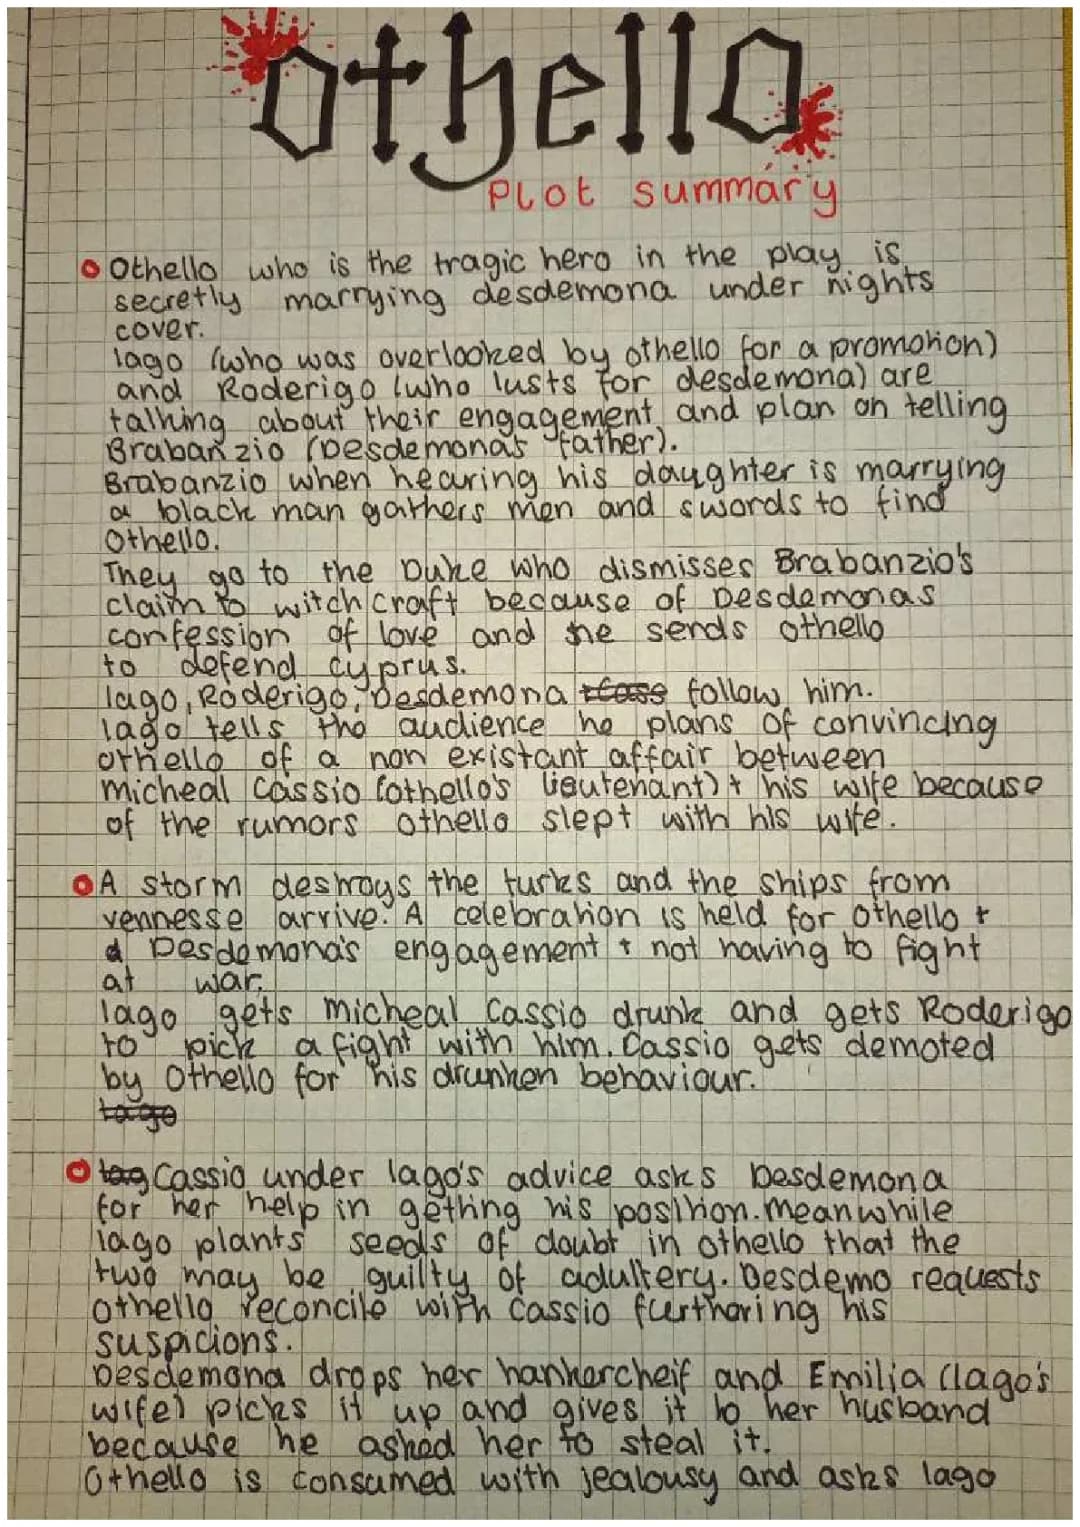 othello
Plot summary
Othello who is the tragic hero in the play is
secretly marrying desdemona under nights
cover.
Iago (who was overlooked by othello for a promotion)
and Roderigo (who lusts for desdemona) are
talking about their engagement and plan on telling
Brabanzio (Desdemona's father).
Brabanzio when hearing his daughter is marrying
a black man gathers men and swords to find
Othello.
They go to the Duke who dismisses Brabanzio's
claim to witchcraft because of Desdemonas
confession of love and he sends othello
to defend cyprus.
Iago, Roderigo, Desdemona follow him.
Iago tells the audience he plans of convincing
othello of a non existant affair between
micheal Cassio (othello's lieutenant) + his wife because
of the rumors othello slept with his wife.
A storm destroys the turks and the ships from
vennesse arrive. A celebration is held for othello +
Desdemona's engagement + not having to fight
at war.
Iago gets micheal Cassio drunk and gets Roderigo
to pick a fight with him. Cassio gets demoted
by Othello for his drunken behaviour.
Iago
Iag Cassio under Iago's advice asks Desdemona
for her help in getting his position. Meanwhile
Iago plants seeds of doubt in othello that the
two may be guilty of adultery. Desdemo requests
othello reconcile with Cassio furthering his
suspicions.
Desdemona drops her hankercheif and Emilia (Iago's
wife) picks it up and gives it to her husband
because he asked her to steal it.
Othello is consumed with jealousy and asks Iago